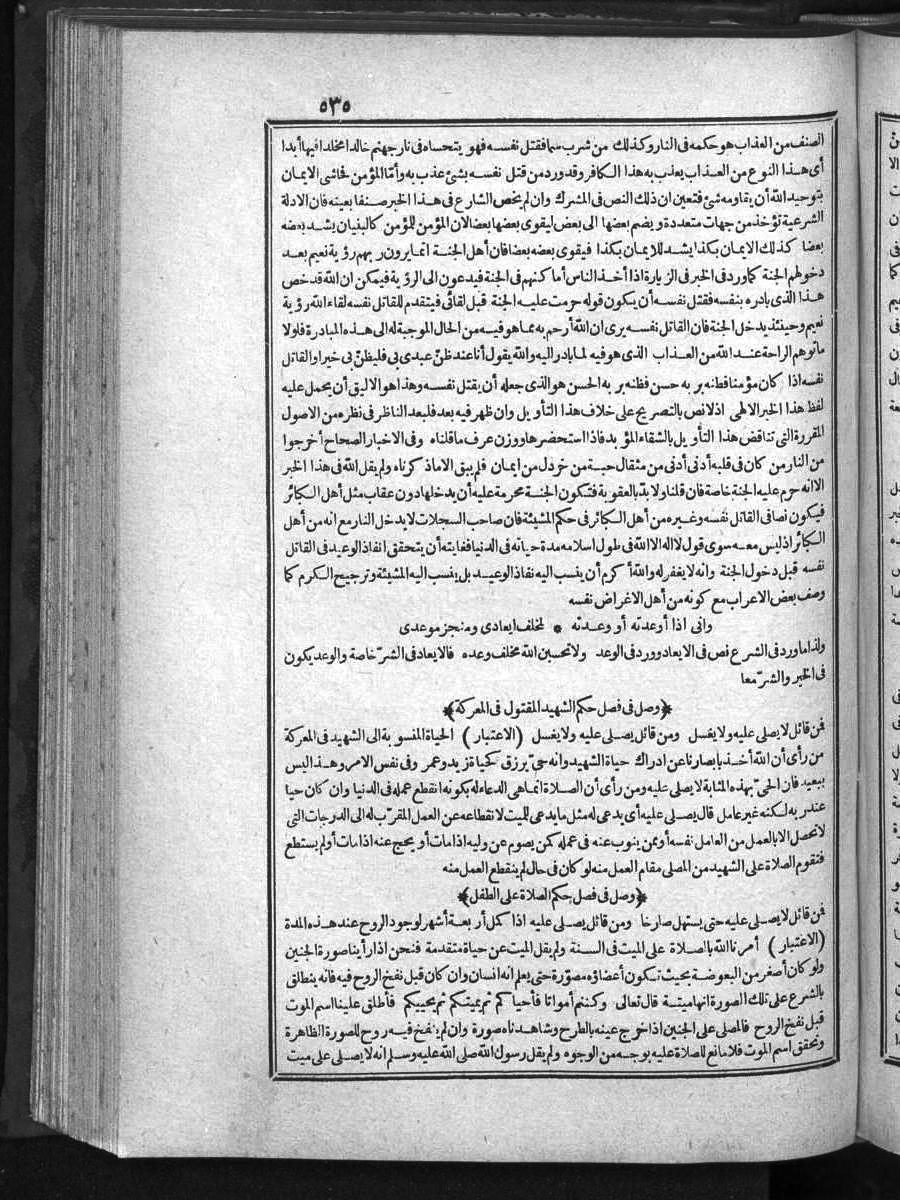 ٥٣٥
الصنف من العذاب هو حكمه فى النار وكذلك من شرب سما فقتل نفسه فهو يتحساه فى نار جهنم خالدا مخلدا فيها أبدا
أى هذا النوع من العذاب يعذب به هذا الكافر وقد ورد من قتل نفسه بشئ عذب به وأمّا المؤمن فحاشى الايمان
بتوحيد الله أن يقاومه شئ فتعين ان ذلك النص فى المشرك وان لم يخص الشارع فى هذا الخبر صنفا بعينه فان الادلة
الشرعية تؤخذ من جهات متعددة ويضم بعضها الى بعض ليقوى بعضها بعضا لان المؤمن للمؤمن كالبنيان يشد بعضه
بعضا كذلك الايمان بكذا يشد للايمان بكذا فيقوى بعضه بعضا فان أهل الجنة انما يرون ربهم رؤية نعيم بعد
دخولهم الجنة كما ورد فى الخبر فى الزيارة اذا أخذ الناس أماكنهم فى الجنة فيدعون الى الرؤية فيمكن ان الله قد خص
هذا الذى بادره بنفسه فقتل نفسه أن يكون قوله حرمت عليه الجنة قبل لقائى فيتقدم للقاتل نفسه لقاء الله رؤية
نعيم وحينئذ يدخل الجنة فان القاتل نفسه يرى ان الله أرحم به مما هو فيه من الحال الموجبة له الى هذه المبادرة فلولا
ما توهم الراحة عند الله من العذاب الذى هو فيه لما بادر اليه والله يقول أنا عند ظنّ عبدى بى فليظنّ بى خيرا والقاتل
نفسه اذا كان مؤمنا فظنه بربه حسن فظنه بربه الحسن هو الذى جعله أن يقتل نفسه وهذا هو الاليق أن يحمل عليه
لفظ هذا الخبر الالهى اذ لا نص بالتصريح على خلاف هذا التأويل وان ظهر فيه بعد فلبعد الناظر فى نظره من الاصول
المقررة التى تناقض هذا التأويل بالشقاء المؤبد فاذا استحضرها ووزن عرف ما قلناه وفى الاخبار الصحاح أخرجوا
من النار من كان فى قلبه أدنى أدنى من مثقال حبة من خردل من ايمان فلم يبق الا ما ذكرناه ولم يقل الله فى هذا الخبر
الا انه حرم عليه الجنة خاصة فان قلنا ولا بدّ بالعقوبة فتكون الجنة محرمة عليه أن يدخلها دون عقاب مثل أهل الكبائر
فيكون نصا فى القاتل نفسه وغيره من أهل الكبائر فى حكم المشيئة فان صاحب السجلات لا يدخل النار مع انه من أهل
الكبائر اذ ليس معه سوى قول لا اله الا الله فى طول اسلامه مدة حياته فى الدنيا فغايته أن يتحقق انفاذ الوعيد فى القاتل
نفسه قبل دخول الجنة وانه لا يغفر له والله أكرم أن ينسب اليه نفاذ الوعيد بل ينسب اليه المشيئة وترجيح الكرم كما
وصف بعض الاعراب مع كونه من أهل الاغراض نفسه
وانى اذا أوعدته أو وعدته * لمخلف ايعادى ومنجز موعدى
ولذا ما ورد فى الشرع نص فى الايعاد وورد فى الوعد ولا تحسبن الله مخلف وعده فالايعاد فى الشرّ خاصة والوعد يكون
فى الخير والشرّ معا
﴿وصل فى فصل حكم الشهيد المقتول فى المعركة﴾
فمن قائل لا يصلى عليه ولا يغسل ومن قائل يصلى عليه ولا يغسل (الاعتبار) الحياة المنسوبة الى الشهيد فى المعركة
من رأى أن الله أخذ بابصارنا عن ادراك حياة الشهيد وانه حىّ يرزق كحياة زيد وعمر وفى نفس الامر وهذا ليس
ببعيد فان الحىّ بهذه المثابة لا يصلى عليه ومن رأى أن الصلاة انما هى الدعاء له بكونه انقطع عمله فى الدنيا وان كان حيا
عند ربه لكنه غير عامل قال يصلى عليه أى يدعى له مثل ما يدعى للميت لانقطاعه عن العمل المقرّب له الى الدرجات التى
لا تحصل الا بالعمل من العامل نفسه أو ممن ينوب عنه فى عمله كمن يصوم عن وليه اذا مات أو يحج عنه اذا مات أو لم يستطع
فتقوم الصلاة على الشهيد من المصلى مقام العمل منه لو كان فى حال لم ينقطع العمل منه
﴿وصل فى فصل حكم الصلاة على الطفل﴾
فمن قائل لا يصلى عليه حتى يستهل صارخا ومن قائل يصلى عليه اذا كمل أربعة أشهر لوجود الروح عند هذه المدة
(الاعتبار) أمرنا الله بالصلاة على الميت فى السنة ولم يقل الميت عن حياة متقدمة فنحن اذا رأينا صورة الجنين
ولو كان أصغر من البعوضة بحيث تكون أعضاؤه مصوّرة حتى يعلم انه انسان وان كان قبل نفخ الروح فيه فانه ينطلق
بالشرع على تلك الصورة انها ميتة قال تعالى وكنتم أمواتا فأحياكم ثم يميتكم ثم يحييكم فأطلق علينا اسم الموت
قبل نفخ الروح فالمصلى على الجنين اذا خرج عينه بالطرح وشاهدناه صورة وان لم ينفخ فيه روح للصورة الظاهرة
وتحقق اسم الموت فلا مانع للصلاة عليه بوجه من الوجوه ولم يقل رسول الله صلى الله عليه وسلم انه لا يصلى على ميت